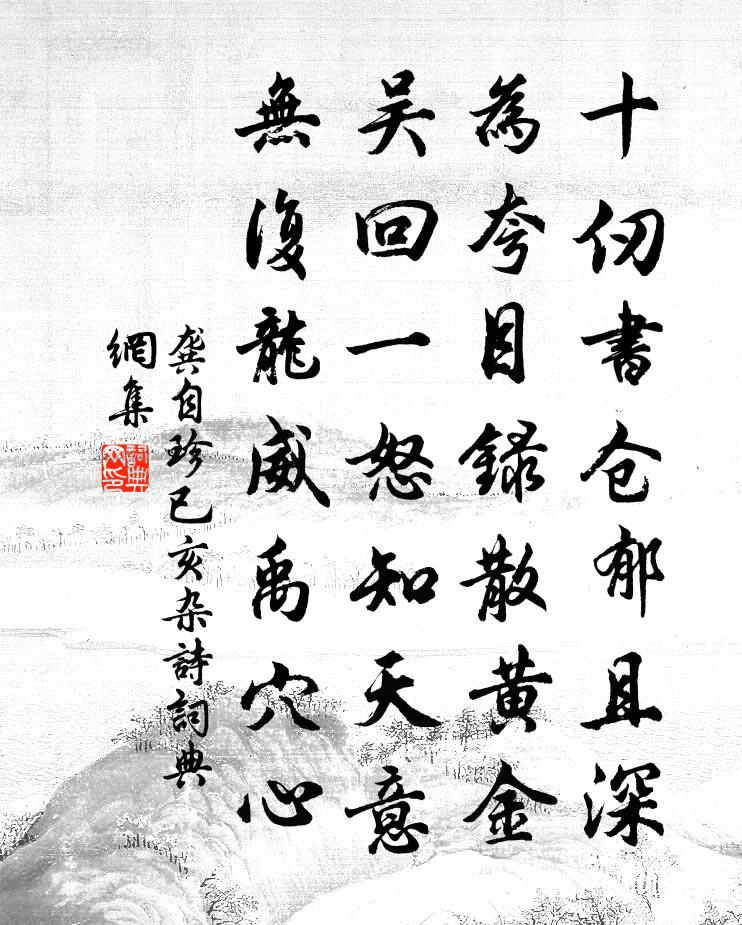 十仞書仓郁且深
為夸目錄散黄金
吴回一怒知天意
無復龍威禹穴心
龔自珍己亥杂詩詞典
網集
詞典網印